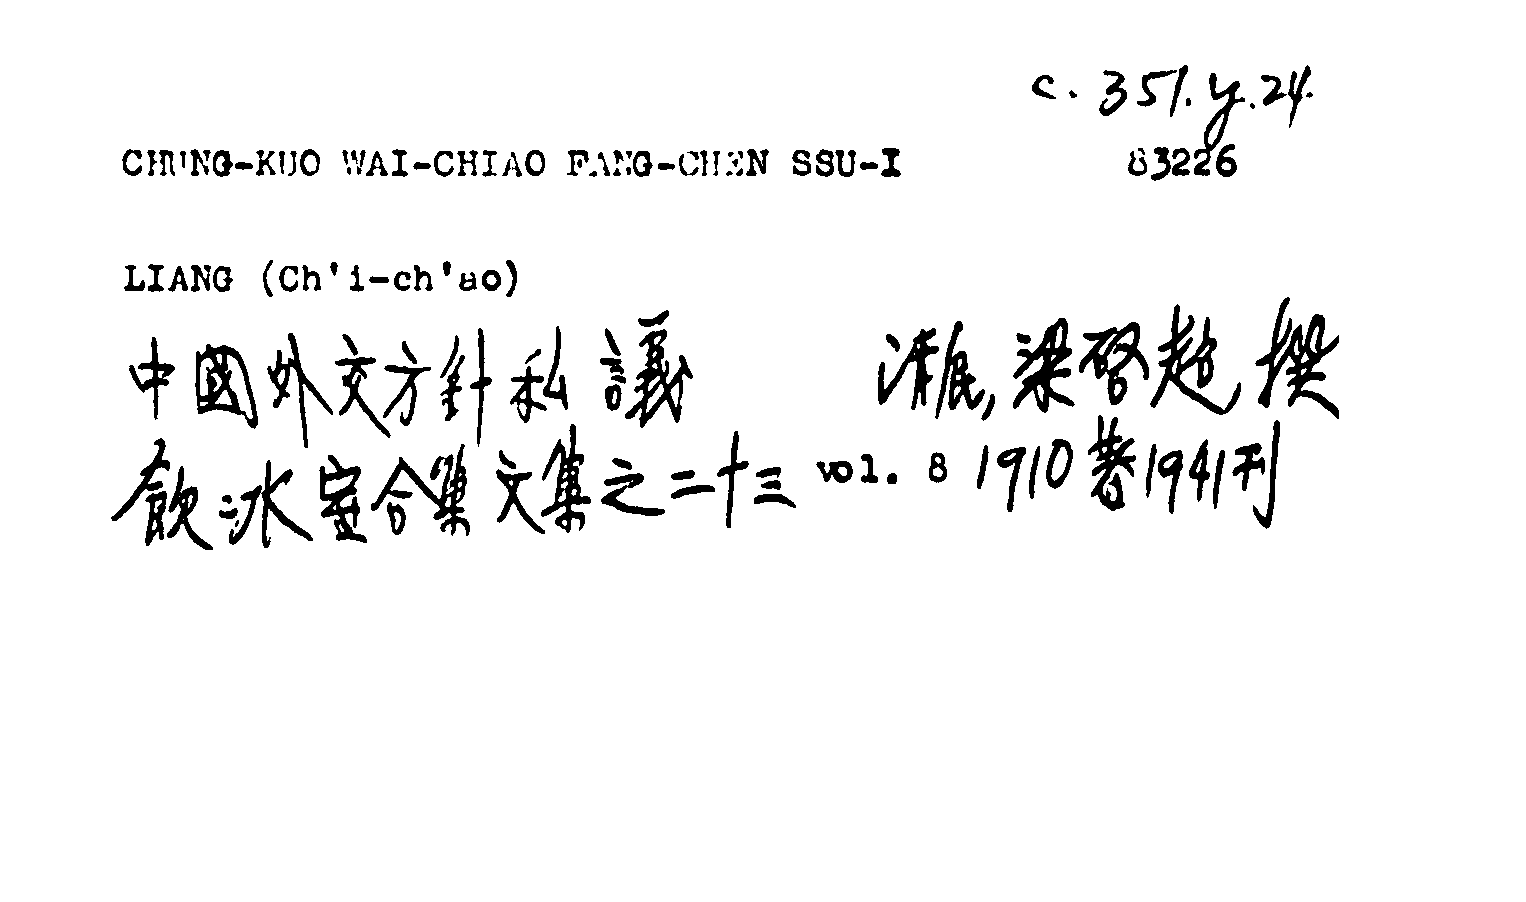 c. 351. y. 24.
CHUNG-KUO WAI-CHIAO FANG-CHEN SSU-I 83226
LIANG (Ch'i-ch'ao)
中國外交方針私議 清, 梁啓超, 撰
飲冰室合集文集之二十三 vol. 8 1910著1941刊